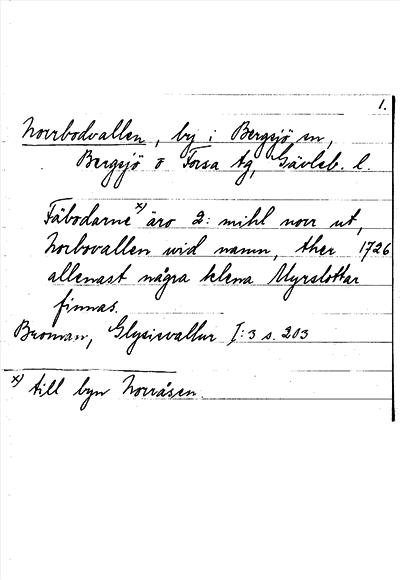 1.
Norrbodvallen, by i Bergsjö sn,
Bergsjö o Forsa tg, Gävleb. l.
Fäbodarne x) äro 2: mihl norr ut,
Norbovallen wid namn, ther 1726
allenast några klena Myrslottar
finnas.
Broman, Glysisvallur I:3 s. 203
x) till byn Norråsen.